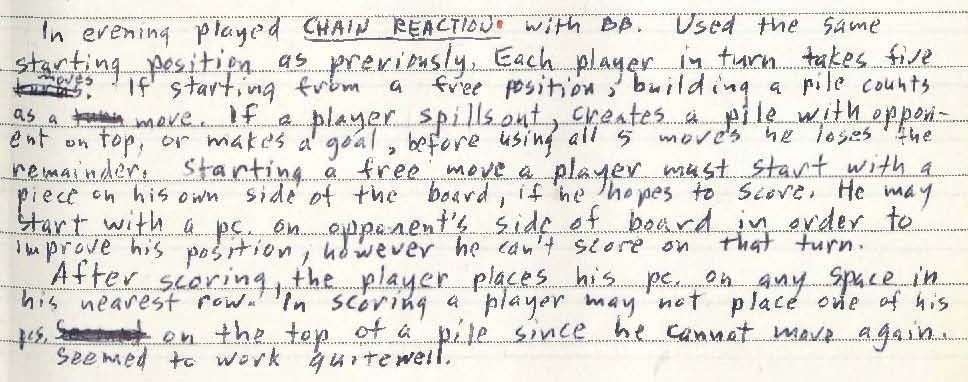 In evening played CHAIN REACTION with BB. Used the same
starting position as previously. Each player in turn takes five
moves. If starting from a free position, building a pile counts
as a move. If a player spills out, creates a pile with oppon-
ent on top, or makes a goal, before using all 5 moves he loses the
remainder. Starting a free move a player must start with a
piece on his own side of the board, if he hopes to score. He may
start with a pc. on opponent's side of board in order to
improve his position, however he can't score on that turn.
After scoring, the player places his pc. on any space in
his nearest row. In scoring a player may not place one of his
pcs. on the top of a pile since he cannot move again.
Seemed to work quite well.